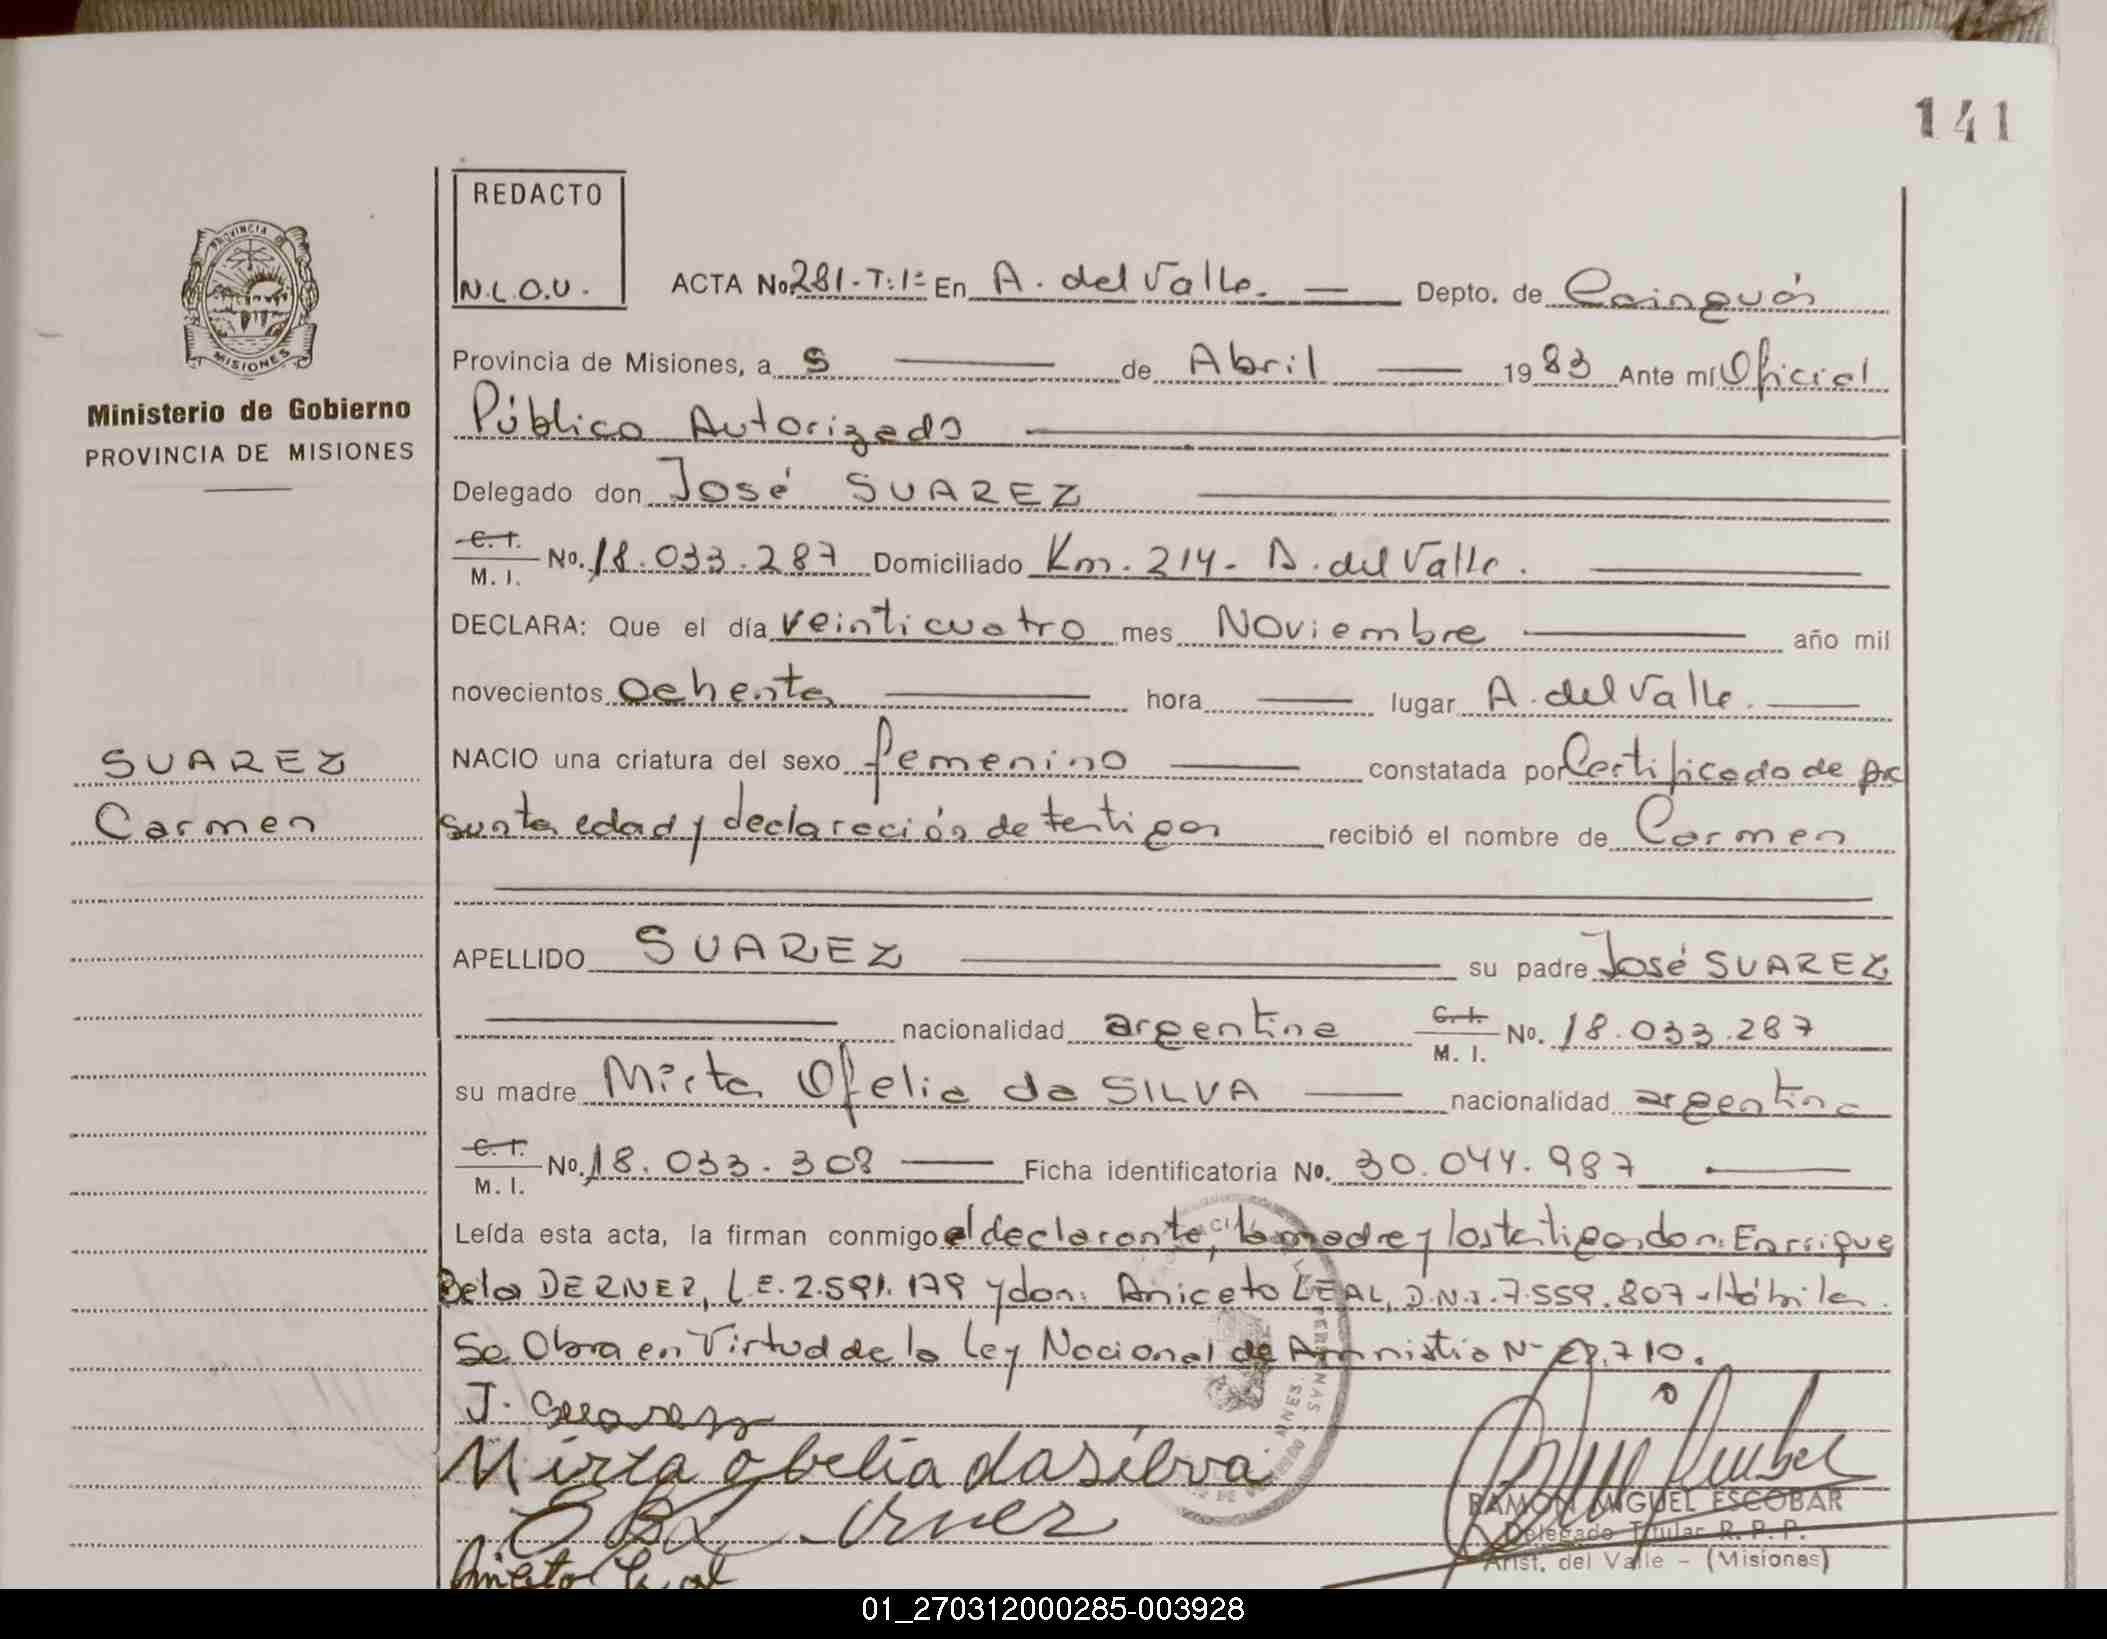 141
REDACTO
N.L.O.U.
PROVINCIA DE
MISIONES
Ministerio de Gobierno
PROVINCIA DE MISIONES
ACTA No 281-T:1º En A. del Valle. Depto. de Cainguás
Provincia de Misiones, a 5 de Abril 1983 Ante mí Oficial
Público Autorizado
Delegado don José SUAREZ
C.I. M. I. No. 18.033.287 Domiciliado Km. 214- A. del Valle.
DECLARA: Que el día veinticuatro mes Noviembre año mil
novecientos ochenta hora lugar A. del Valle.
SUAREZ
NACIO una criatura del sexo femenino constatada por Certificado de pre
Carmen
sunta edad y declaración de testigos recibió el nombre de Carmen
APELLIDO SUAREZ su padre José SUAREZ
nacionalidad argentina C.I. M. I. No. 18.033.287
su madre Mirta Ofelia da SILVA nacionalidad argentina
C.I. M. I. No. 18.033.308 Ficha identificatoria No. 30.044.987
Leída esta acta, la firman conmigo el declarante, la madre y los testigos don: Enrrique
Bela DERNER, L.E. 2.591.179 y don: Aniceto LEAL, D.N.I. 7.559.807 -Hábiles.
Se Obra en Virtud de la Ley Nacional de Amnistia Nº 22.710.
J. Suarez
Mirta ofelia da silva
Aniceto Leal
RAMON MIGUEL ESCOBAR
Delegado Titular R. P. P.
Arist. del Valle - (Misiones)
01_270312000285-003928